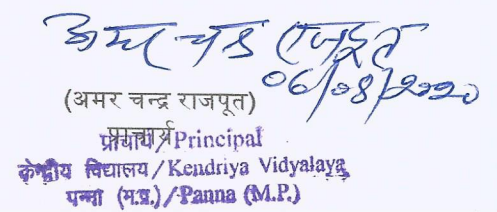 अमर चन्द्र राजपूत
06/08/2020
(अमर चन्द्र राजपूत)
प्राचार्य
प्राचार्य/Principal
केन्द्रीय विद्यालय/Kendriya Vidyalaya,
पन्ना (म.प्र.)/Panna (M.P.)